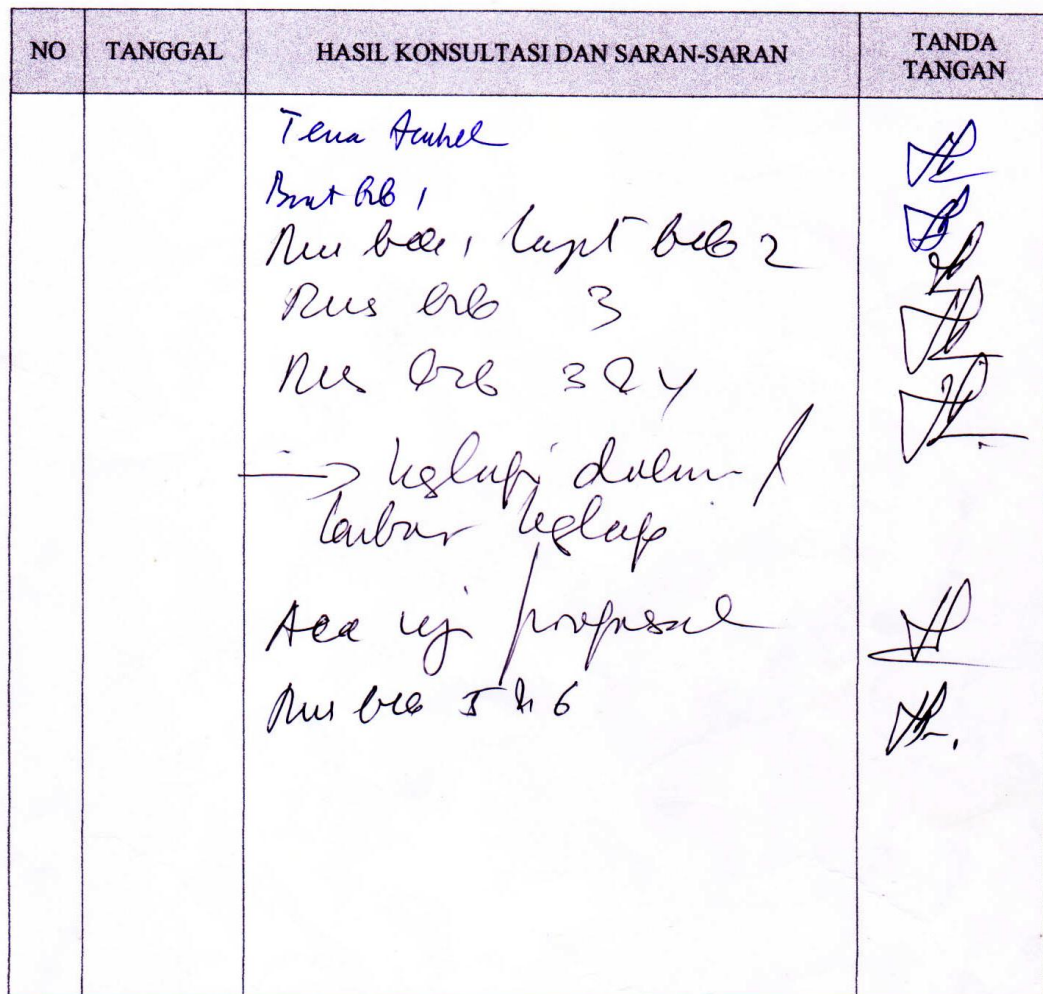 NO TANGGAL HASIL KONSULTASI DAN SARAN-SARAN TANDA TANGAN
Tema
Buat bab 1
bab 1 lanjut bab 2
Rev bab 3
Rev bab 3 & 4
lengkapi
lengkapi
Acc uji proposal
Rev bab 5 & 6